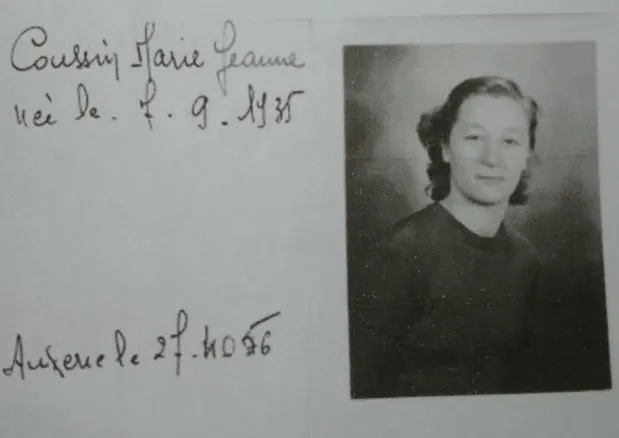 Coussin Marie Jeanne
née le. 7. 9. 1935
Auxerre le 27.